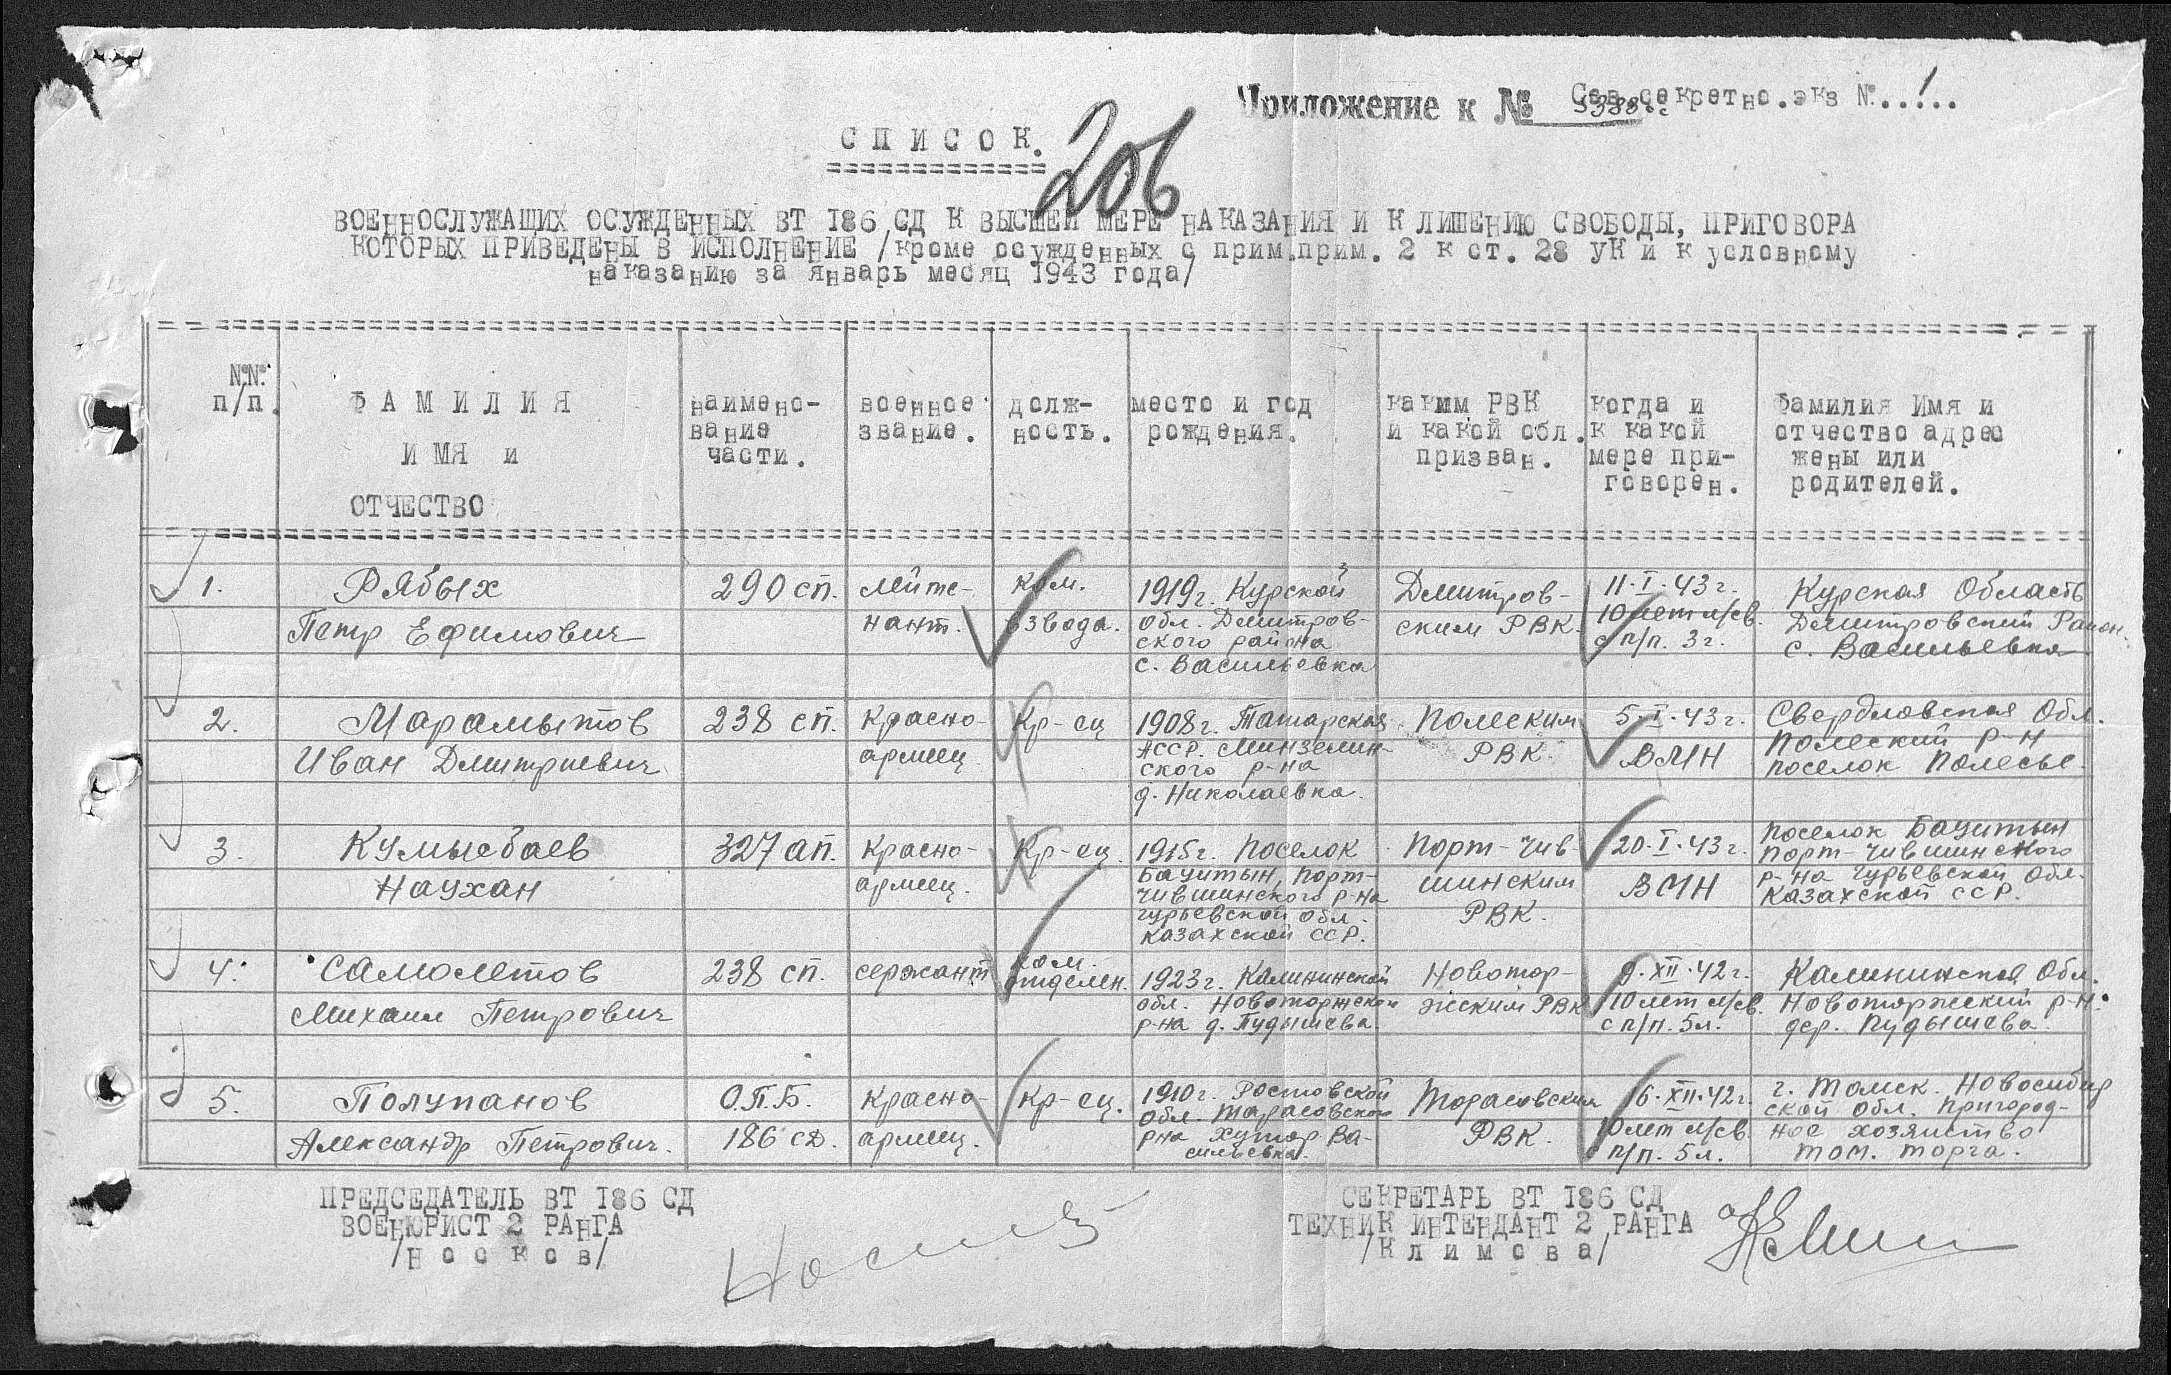 Приложение к № 5388с
Сов.секретно.экз №..1..
СПИСОК.
206
ВОЕННОСЛУЖАЩИХ ОСУЖДЕННЫХ ВТ 186 СД К ВЫСШЕЙ МЕРЕ НАКАЗАНИЯ И К ЛИШЕНИЮ СВОБОДЫ, ПРИГОВОРА
КОТОРЫХ ПРИВЕДЕНЫ В ИСПОЛНЕНИЕ /кроме осужденных с прим.прим. 2 к ст. 28 УК и к условному
наказанию за январь месяц 1943 года/
№№ п/п.
ФАМИЛИЯ ИМЯ и ОТЧЕСТВО
наимено-вание части.
военное звание.
долж-ность.
место и год рождения.
каким РВК и какой обл. призван.
когда и к какой мере при-говорен.
Фамилия Имя и отчество адрес жены или родителей.
1.
Рябых
Петр Ефимович
290 сп.
лейте-
нант.
ком.
взвода.
1919г. Курской
обл. Дмитров-
ского района
с. Васильевка
Дмитров-
ским РВК.
11.I.43г.
10 лет л/св.
с п/п. 3г.
Курская Область
Дмитровский Район.
с. Васильевка
2.
Марамытов
Иван Дмитриевич
238 сп.
Красно-
армец
Кр-ец
1908г. Татарская
АССР. Минзелин-
ского р-на
д. Николаевка.
Полеским
РВК.
5.I.43г.
ВМН
Свердловская Обл.
Полеский р-н
поселок Полесье.
3.
Кумысбаев
Наухан
327 ап.
Красно-
армец.
Кр-ец.
1915г. Поселок
Баутын, Порт-
Чившинского р-на
Гурьевской обл.
Казахской ССР.
Порт-Чив
шинским
РВК.
20.I.43г.
ВМН
поселок Бауитын
Порт-Чившинского
р-на Гурьевской Обл.
Казахской ССР.
4.
Самолетов
Михаил Петрович
238 сп.
сержант
ком.
отделен.
1923г. Калининской
обл. Новоторжской
р-на д. Пудышева.
Новотор-
жским РВК
9.XII.42г.
10 лет л/св.
с п/п. 5л.
Калининская Обл.
Новоторжский р-н.
дер. Пудышева.
5.
Полупанов
Александр Петрович.
О.П.Б.
186 сд.
Красно-
армец.
Кр-ец.
1910г. Ростовской
Обл. Тарасовского
р-на хутор Ва-
сильевка.
Торасовским
РВК.
16.XII.42г.
10 лет л/св.
п/п. 5л.
г. Томск. Новосибир
ской обл. Пригород-
ное хозяйство
Том. торга.
ПРЕДСЕДАТЕЛЬ ВТ 186 СД
ВОЕНЮРИСТ 2 РАНГА
/Носков/
СЕКРЕТАРЬ ВТ 186 СД
ТЕХНИК ИНТЕНДАНТ 2 РАНГА
/Климова/